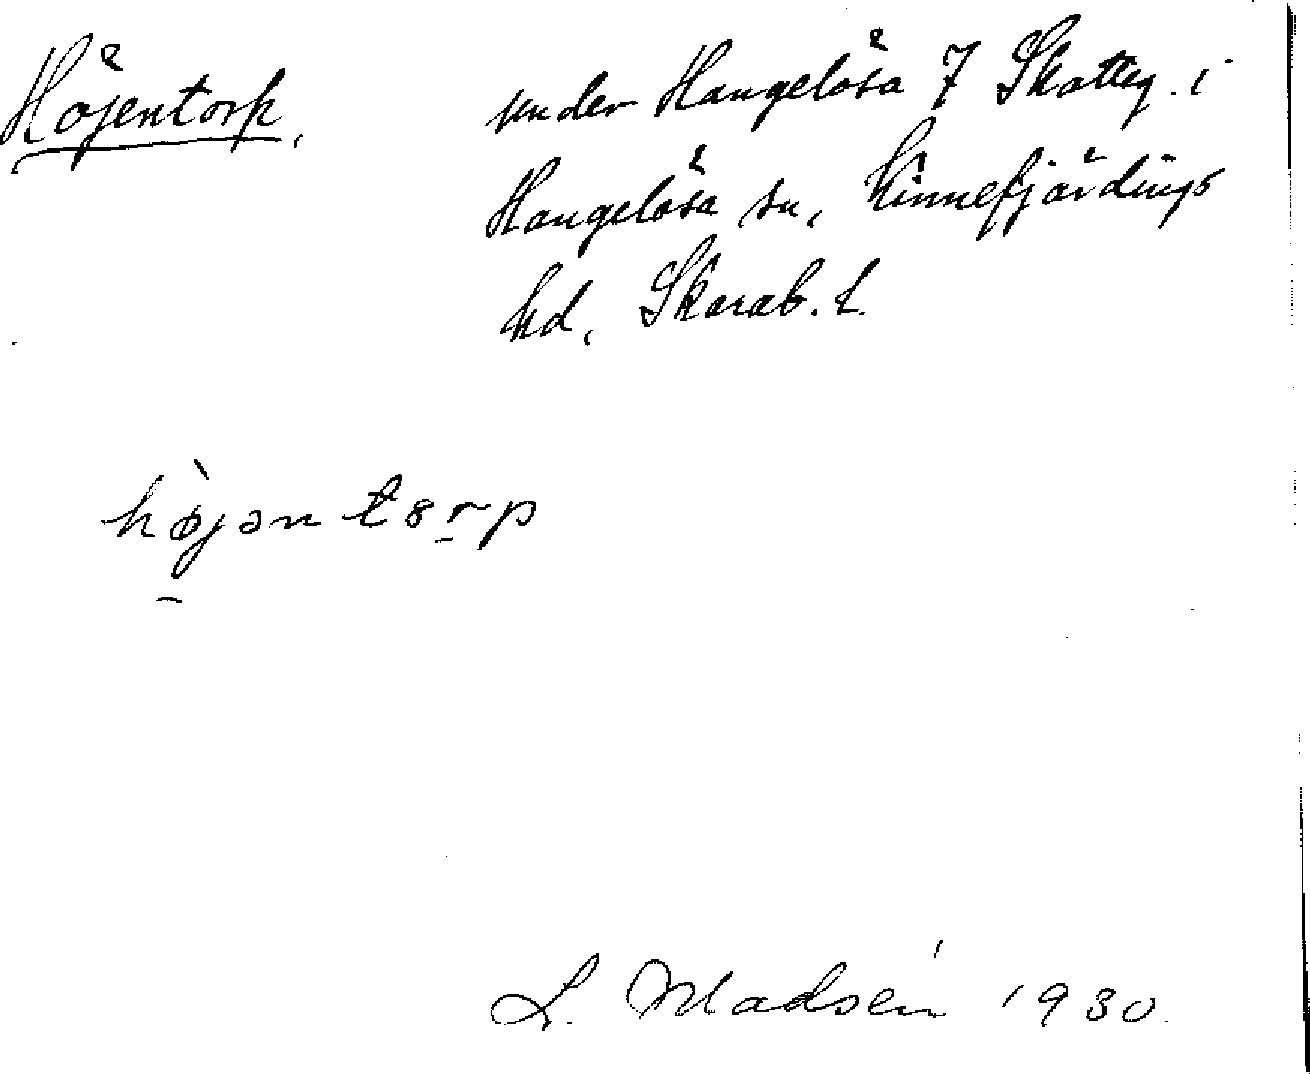 Höjentorp, under Hangelösa 7 Skatteg. i
Hangelösa sn, Kinnefjärdings
hd, Skarab. l.
hø̀jən torp
L. Madsén 1930.